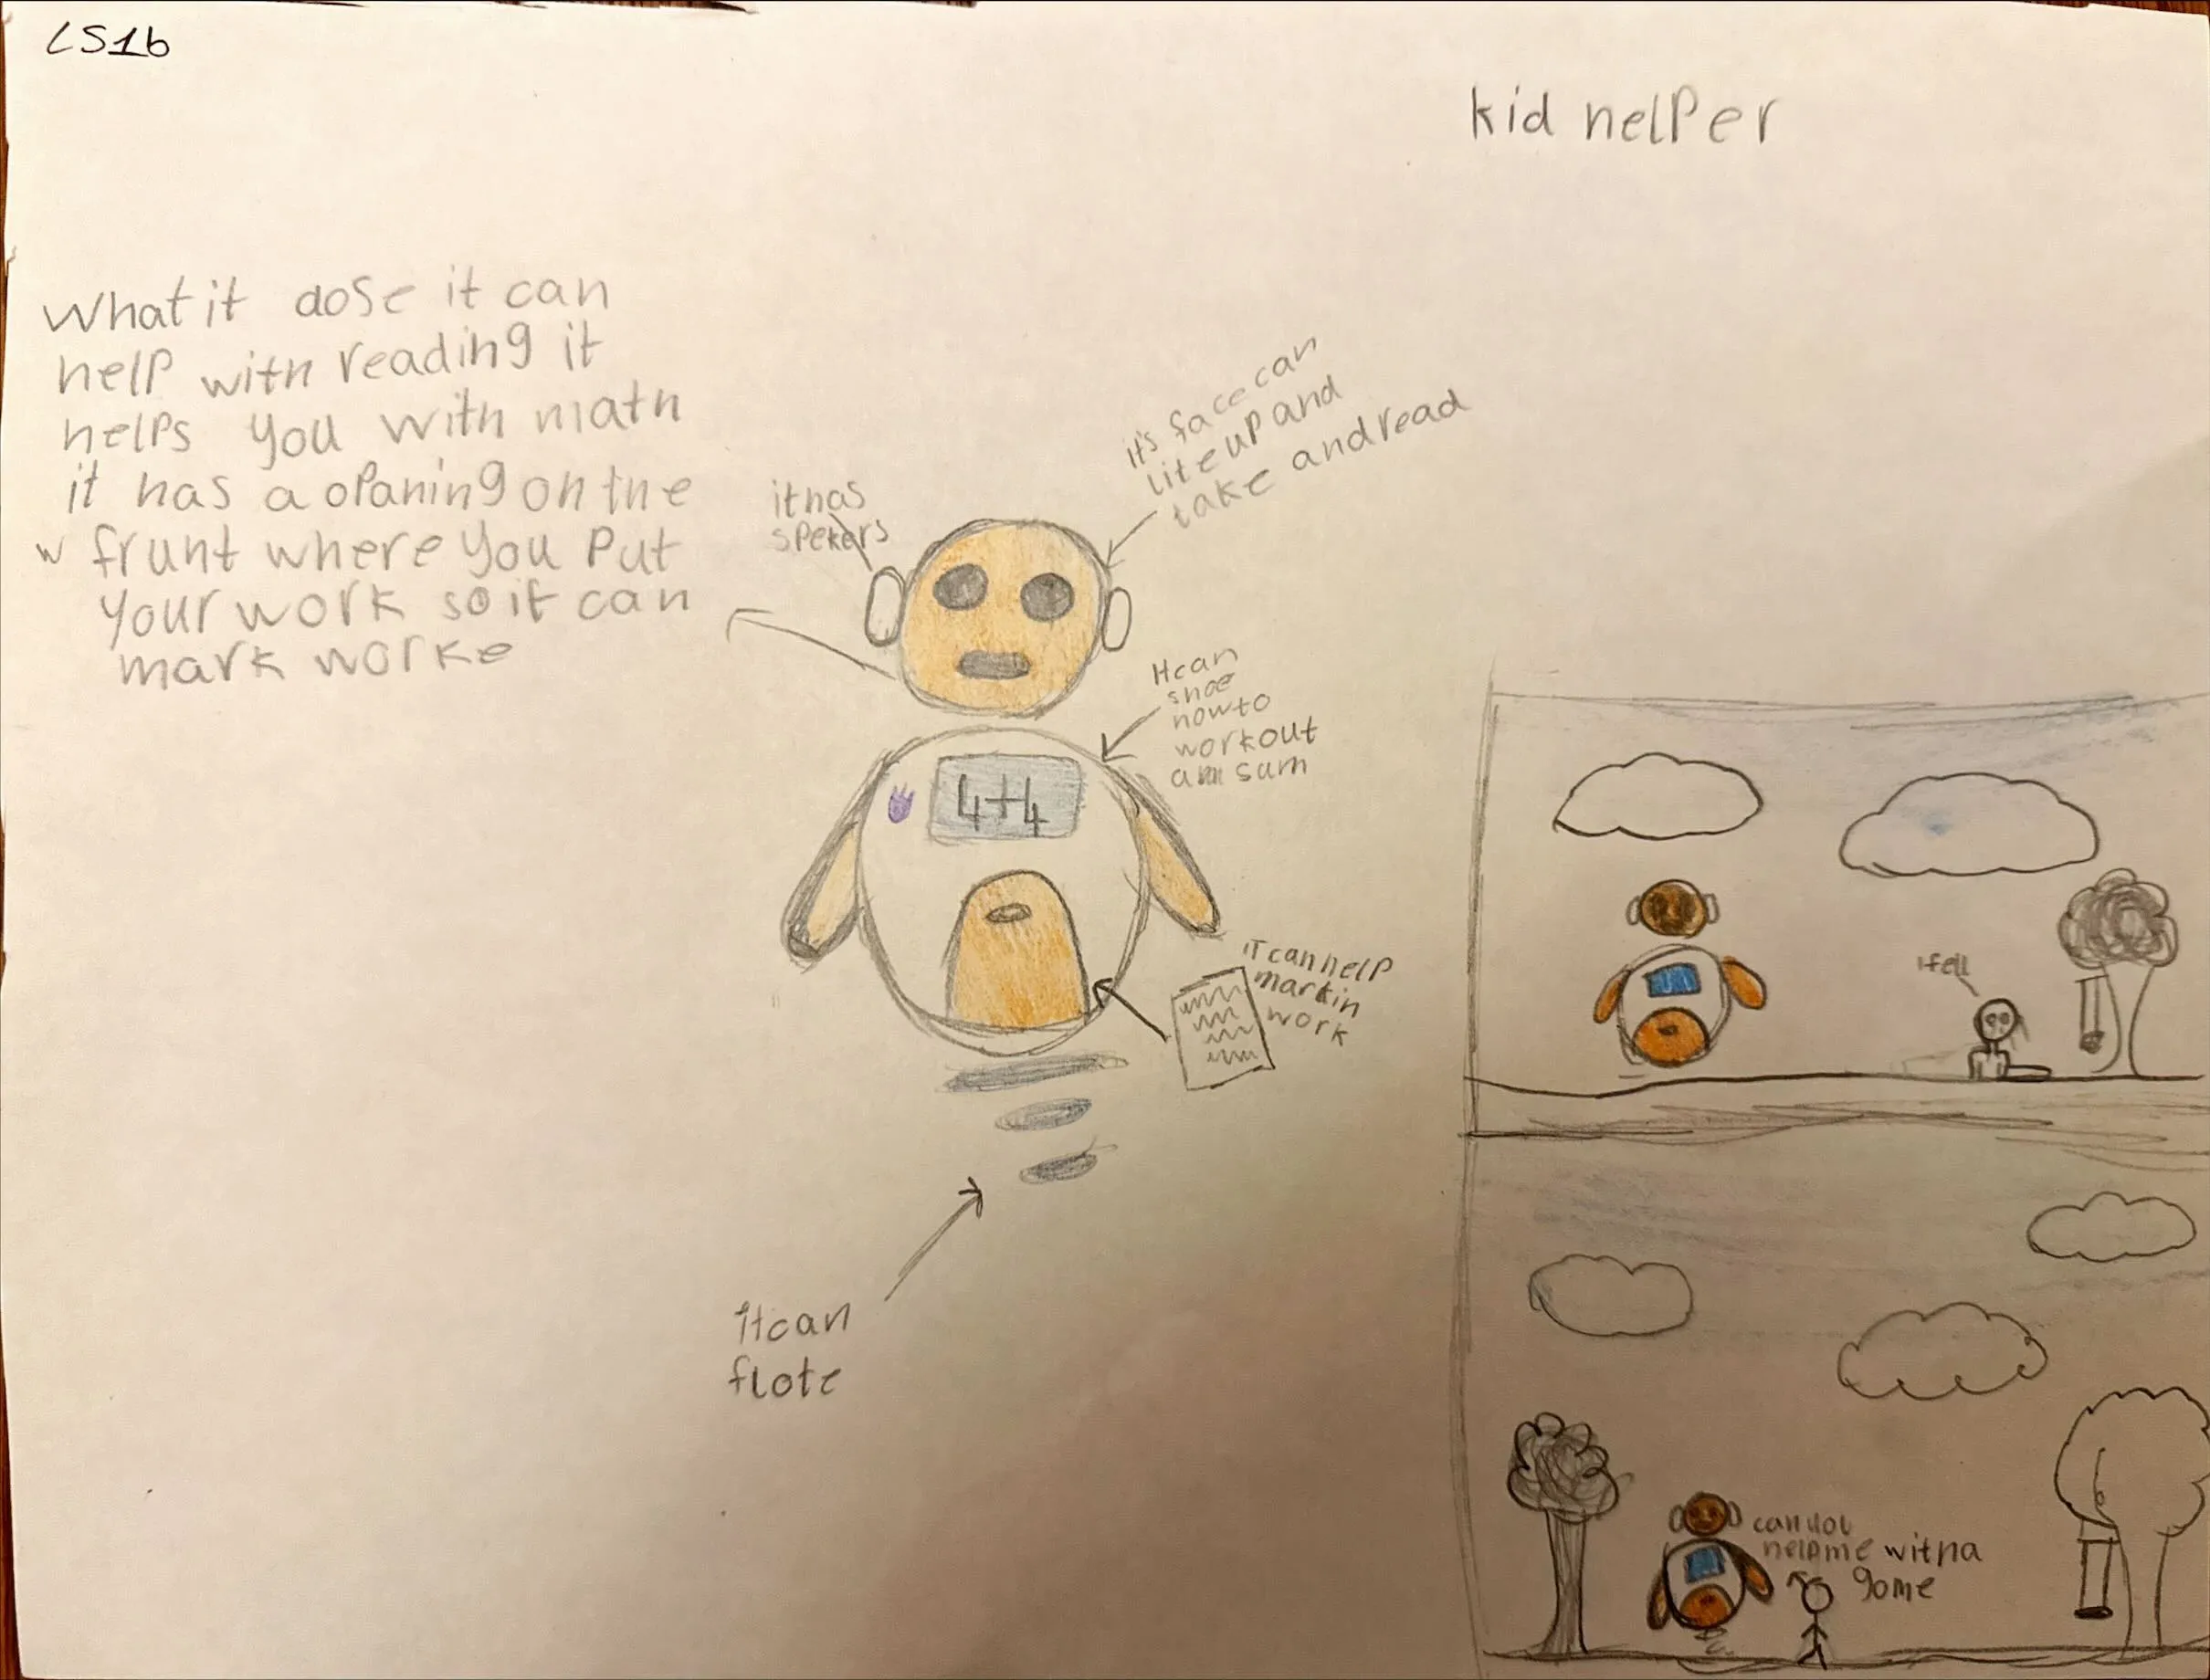 LS1b
kid helper
What it dose it can
help with reading it
helps you with math
it has a opaning on the
w frunt where you put
your work so it can
mark worke
it has
spekers
it's face can
lite up and
take and read
It can
shoe
how to
workout
a sum
4+4
it can help
markin
work
It can
flote
I fell
can you
help me with a
game